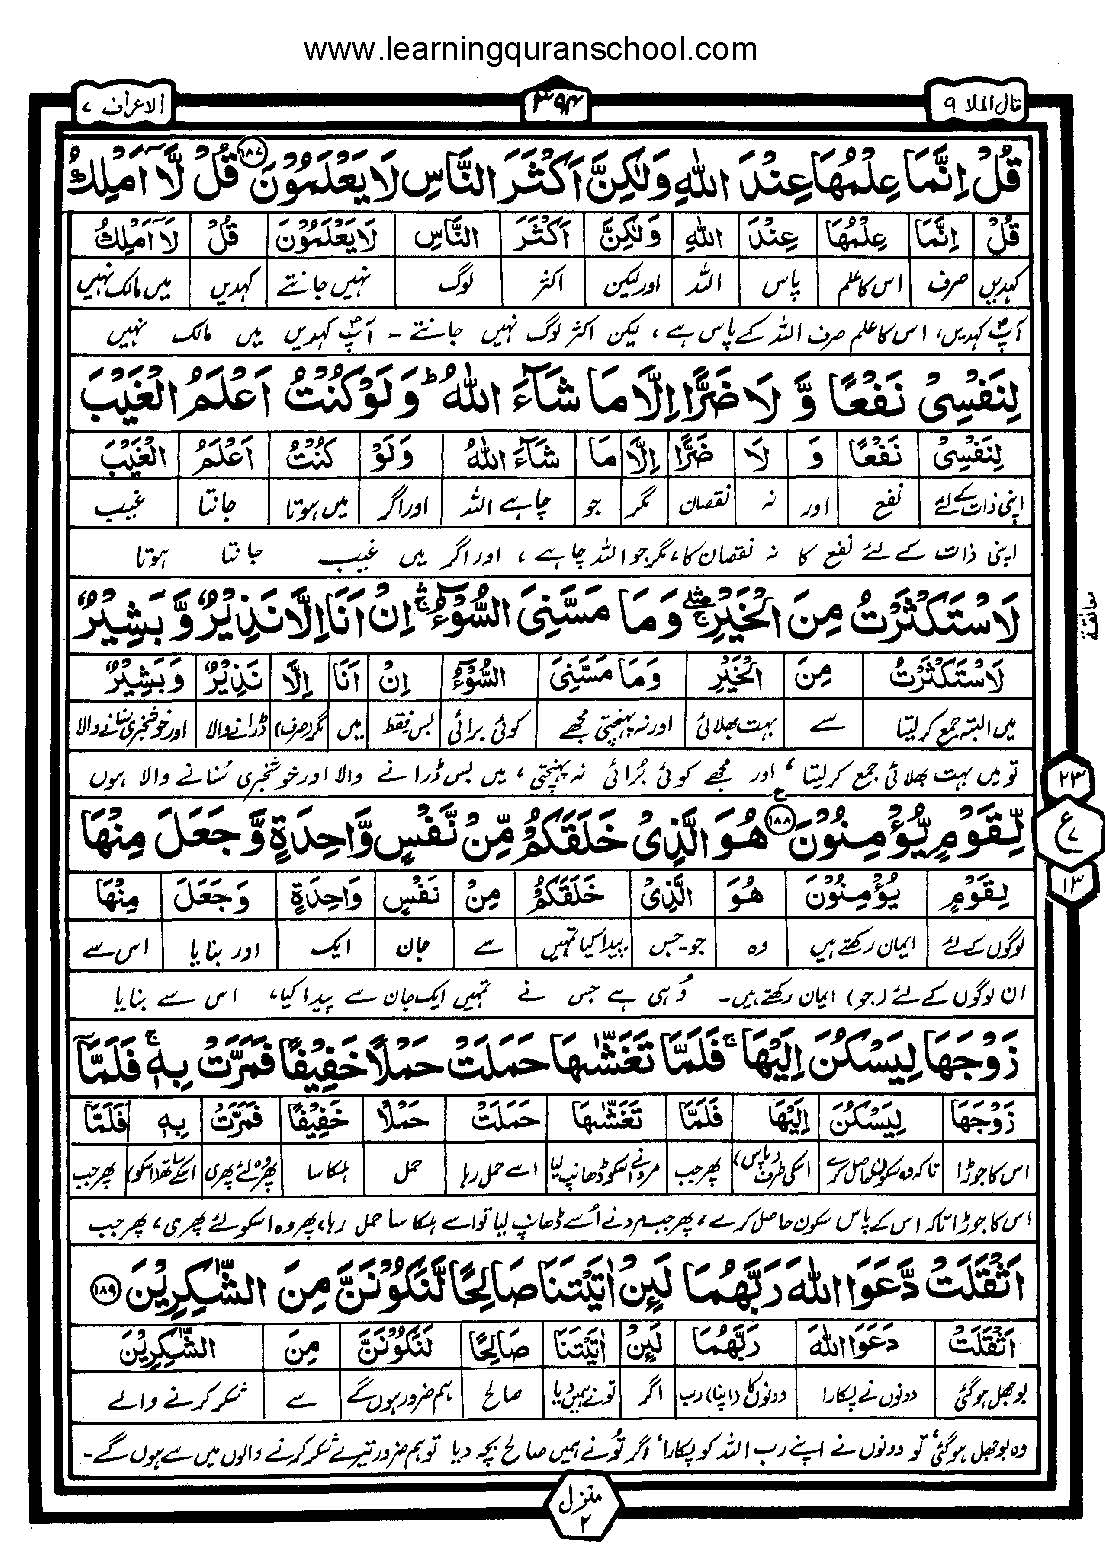 www.learningquranschool.com
قال الملا ٩
٣٩٤
الاعراف ٧
قُلْ اِنَّمَا عِلْمُهَا عِنْدَ اللّٰهِ وَلٰكِنَّ اَكْثَرَ النَّاسِ لَا يَعْلَمُوْنَ ۝١٨٧ قُلْ لَّآ اَمْلِكُ
قُلْ اِنَّمَا عِلْمُهَا عِنْدَ اللّٰهِ وَلٰكِنَّ اَكْثَرَ النَّاسِ لَا يَعْلَمُوْنَ قُلْ لَآ اَمْلِكُ
کہدیں صرف اس کا علم پاس اللہ اور لیکن اکثر لوگ نہیں جانتے کہدیں میں مالک نہیں
آپؐ کہدیں، اس کا علم صرف اللہ کے پاس ہے، لیکن اکثر لوگ نہیں جانتے - آپؐ کہدیں میں مالک نہیں
لِنَفْسِیْ نَفْعًا وَّ لَا ضَرًّا اِلَّا مَا شَآءَ اللّٰهُ ؕ وَلَوْ كُنْتُ اَعْلَمُ الْغَيْبَ
لِنَفْسِیْ نَفْعًا وَ لَا ضَرًّا اِلَّا مَا شَآءَ اللّٰهُ وَلَوْ كُنْتُ اَعْلَمُ الْغَيْبَ
اپنی ذات کے لئے نفع اور نہ نقصان مگر جو چاہے اللہ اور اگر میں ہوتا جانتا غیب
اپنی ذات کے لئے نفع کا نہ نقصان کا، مگر جو اللہ چاہے، اور اگر میں غیب جانتا ہوتا
لَاسْتَكْثَرْتُ مِنَ الْخَيْرِ ۛۚ وَمَا مَسَّنِیَ السُّوْٓءُ ۛۚ اِنْ اَنَا اِلَّا نَذِيْرٌ وَّبَشِيْرٌ
معانقة
لَاسْتَكْثَرْتُ مِنَ الْخَيْرِ وَمَا مَسَّنِیَ السُّوْٓءُ اِنْ اَنَا اِلَّا نَذِيْرٌ وَبَشِيْرٌ
میں البتہ جمع کر لیتا سے بہت بھلائی اور نہ پہنچتی مجھے کوئی برائی بس فقط میں مگر (صرف) ڈرانے والا اور خوشخبری سنانے والا
تو میں بہت بھلائی جمع کر لیتا، اور مجھے کوئی بُرائی نہ پہنچتی، میں بس ڈرانے والا اور خوشخبری سُنانے والا ہوں
لِّقَوْمٍ يُّؤْمِنُوْنَ ۝١٨٨ هُوَ الَّذِیْ خَلَقَكُمْ مِّنْ نَّفْسٍ وَّاحِدَةٍ وَّجَعَلَ مِنْهَا
٢٣
ع ٧
١٣
لِقَوْمٍ يُؤْمِنُوْنَ هُوَ الَّذِیْ خَلَقَكُمْ مِنْ نَفْسٍ وَاحِدَةٍ وَجَعَلَ مِنْهَا
لوگوں کے لئے ایمان رکھتے ہیں وہ جو-جس پیدا کیا تمہیں سے جان ایک اور بنایا اس سے
ان لوگوں کے لئے (جو) ایمان رکھتے ہیں- وُہی ہے جس نے تمہیں ایک جان سے پیدا کیا، اس سے بنایا
زَوْجَهَا لِيَسْكُنَ اِلَيْهَا ۚ فَلَمَّا تَغَشّٰىهَا حَمَلَتْ حَمْلًا خَفِيْفًا فَمَرَّتْ بِهٖ ۚ فَلَمَّآ
زَوْجَهَا لِيَسْكُنَ اِلَيْهَا فَلَمَّا تَغَشّٰىهَا حَمَلَتْ حَمْلًا خَفِيْفًا فَمَرَّتْ بِهٖ فَلَمَّآ
اس کا جوڑا تاکہ وہ سکون حاصل کرے اسکی طرف (پاس) پھر جب مرد نے اسکو ڈھانپ لیا اسے حمل رہا حمل ہلکا سا پھر وہ لئے پھری اسکے ساتھ (اسکو) پھر جب
اس کا جوڑا تاکہ اس کے پاس سکون حاصل کرے، پھر جب مرد نے اُسے ڈھانپ لیا تو اسے ہلکا سا حمل رہا، پھر وہ اسکو لئے پھری، پھر جب
اَثْقَلَتْ دَّعَوَا اللّٰهَ رَبَّهُمَا لَئِنْ اٰتَيْتَنَا صَالِحًا لَّنَكُوْنَنَّ مِنَ الشّٰكِرِيْنَ ۝١٨٩
اَثْقَلَتْ دَعَوَا اللّٰهَ رَبَّهُمَا لَئِنْ اٰتَيْتَنَا صَالِحًا لَنَكُوْنَنَّ مِنَ الشّٰكِرِيْنَ
بوجھل ہو گئی دونوں نے پکارا دونوں کا (اپنا) رب اگر تو نے ہمیں دیا صالح ہم ضرور ہوں گے سے شکر کرنے والے
وہ بوجھل ہو گئی تو دونوں نے اپنے رب اللہ کو پکارا اگر تُو نے ہمیں صالح بچہ دیا تو ہم ضرور تیرے شکر کرنے والوں میں سے ہوں گے -
منزل ٢